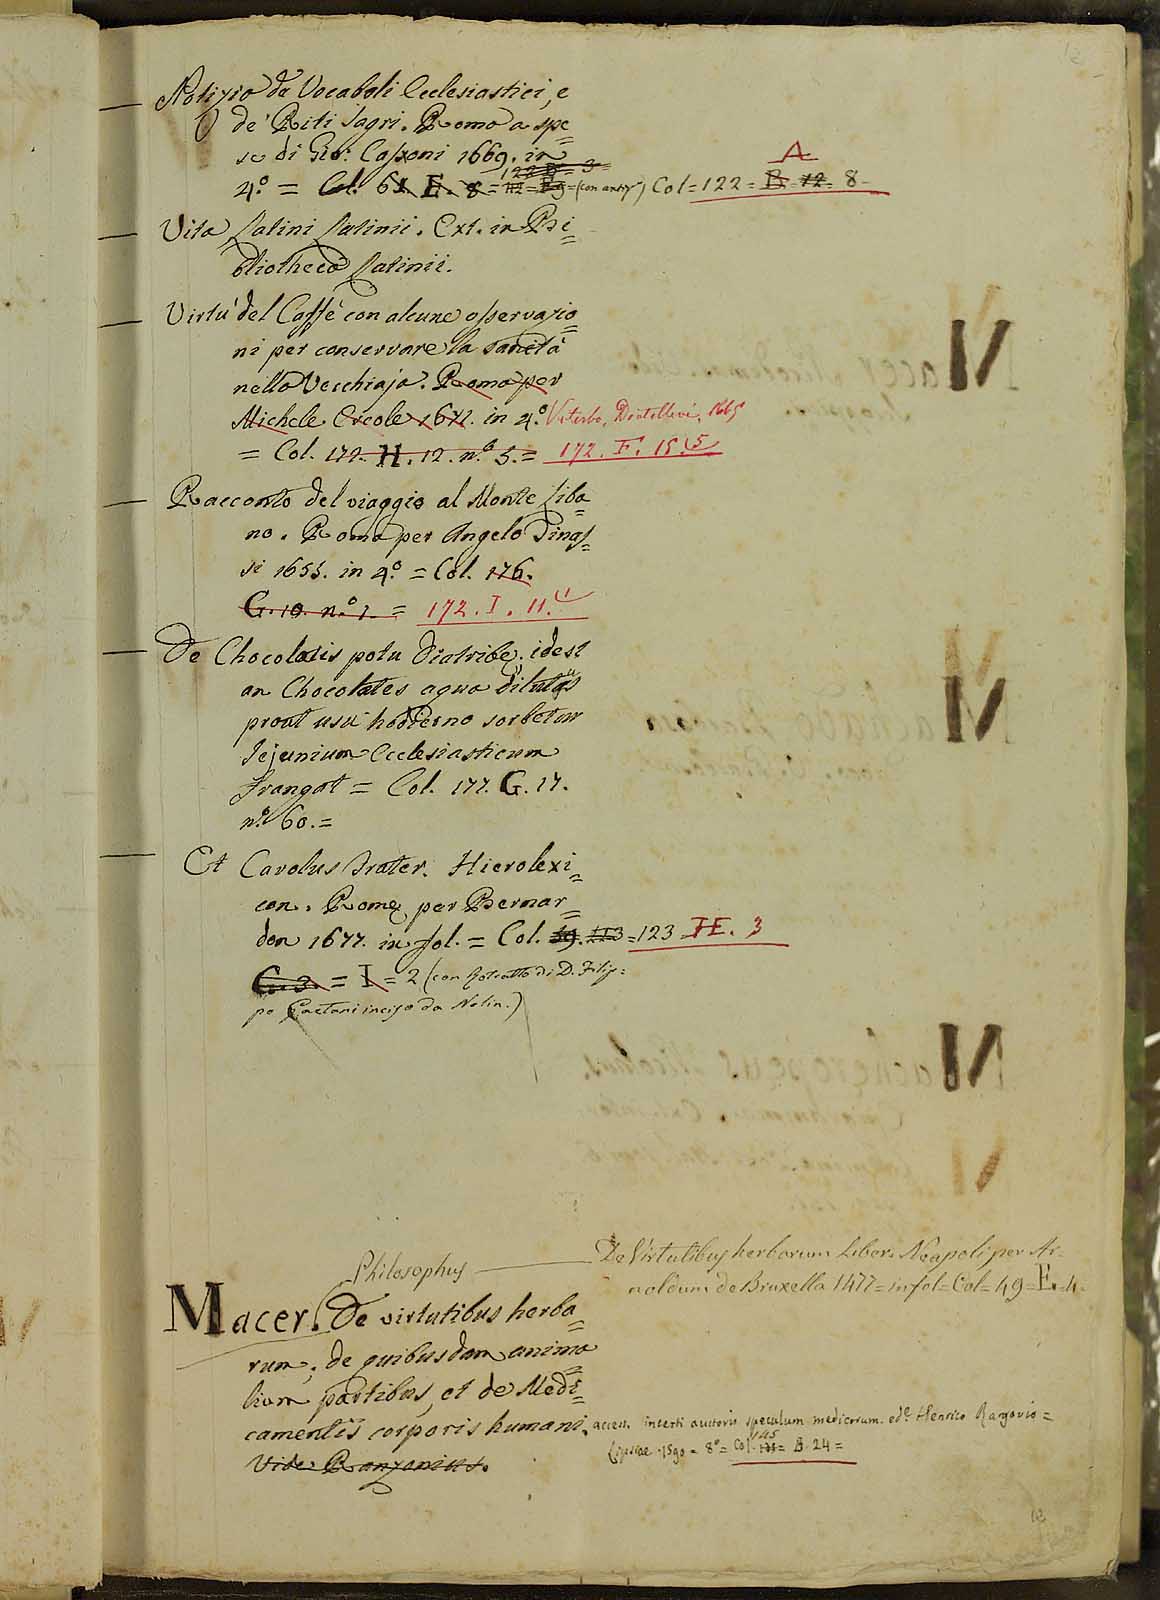 Notizia de Vocaboli Ecclesiastici, e
de' Riti Sagri. Roma a spe=
se di Gio: Cassoni 1669. in
4.º = Col. 61. E. 8 = Col = 122 = B = 12 = 8 -
A
Vita Latini Latinii. Ext. in Bi=
bliotheca Latinii.
Virtu' del Caffè con alcune osservazio=
ni per conservare la sanità
nella Vecchiaja. Roma per
Michele Ercole 1671. in 4.º Viterbo, Diotallevi, 1665
= Col. 172. H. 12. n.º 5. = 172. F. 15.(5
Racconto del viaggio al Monte Liba=
no. Roma per Angelo Tinas=
si 1655. in 4.º = Col. 176.
G. 10. n.º 1. = 172. I. 11.(1
De Chocolatis potu Diatribe, idest
an Chocolates aqua dilutas
prout usu hodierno sorbetur
Jejunium Ecclesiasticum
frangat = Col. 177. G. 17.
n.º 60. =
Et Carolus Frater. Hierolexi=
con. Romę per Bernar=
don 1677. in fol. = Col. 113 = 123 = E. 3
G. 3. = I = 2 (con Ritratto di D. Filip=
po Gaetani inciso da Nolin.)
Philosophus — De Virtutibus herborum Liber. Neapoli per Ar=
noldum de Bruxella 1477 = in fol = Col = 49 = E. 4.
Macer. De virtutibus herba=
rum, de quibusdam anima
lium partibus, et de Medi=
camentis corporis humani. access. incerti auctoris speculum medicorum. ed.e Henrico Ranzovio =
Lipsiae 1590 = 8º = Col 145 = B. 24 =
Vide: Ranzonius.